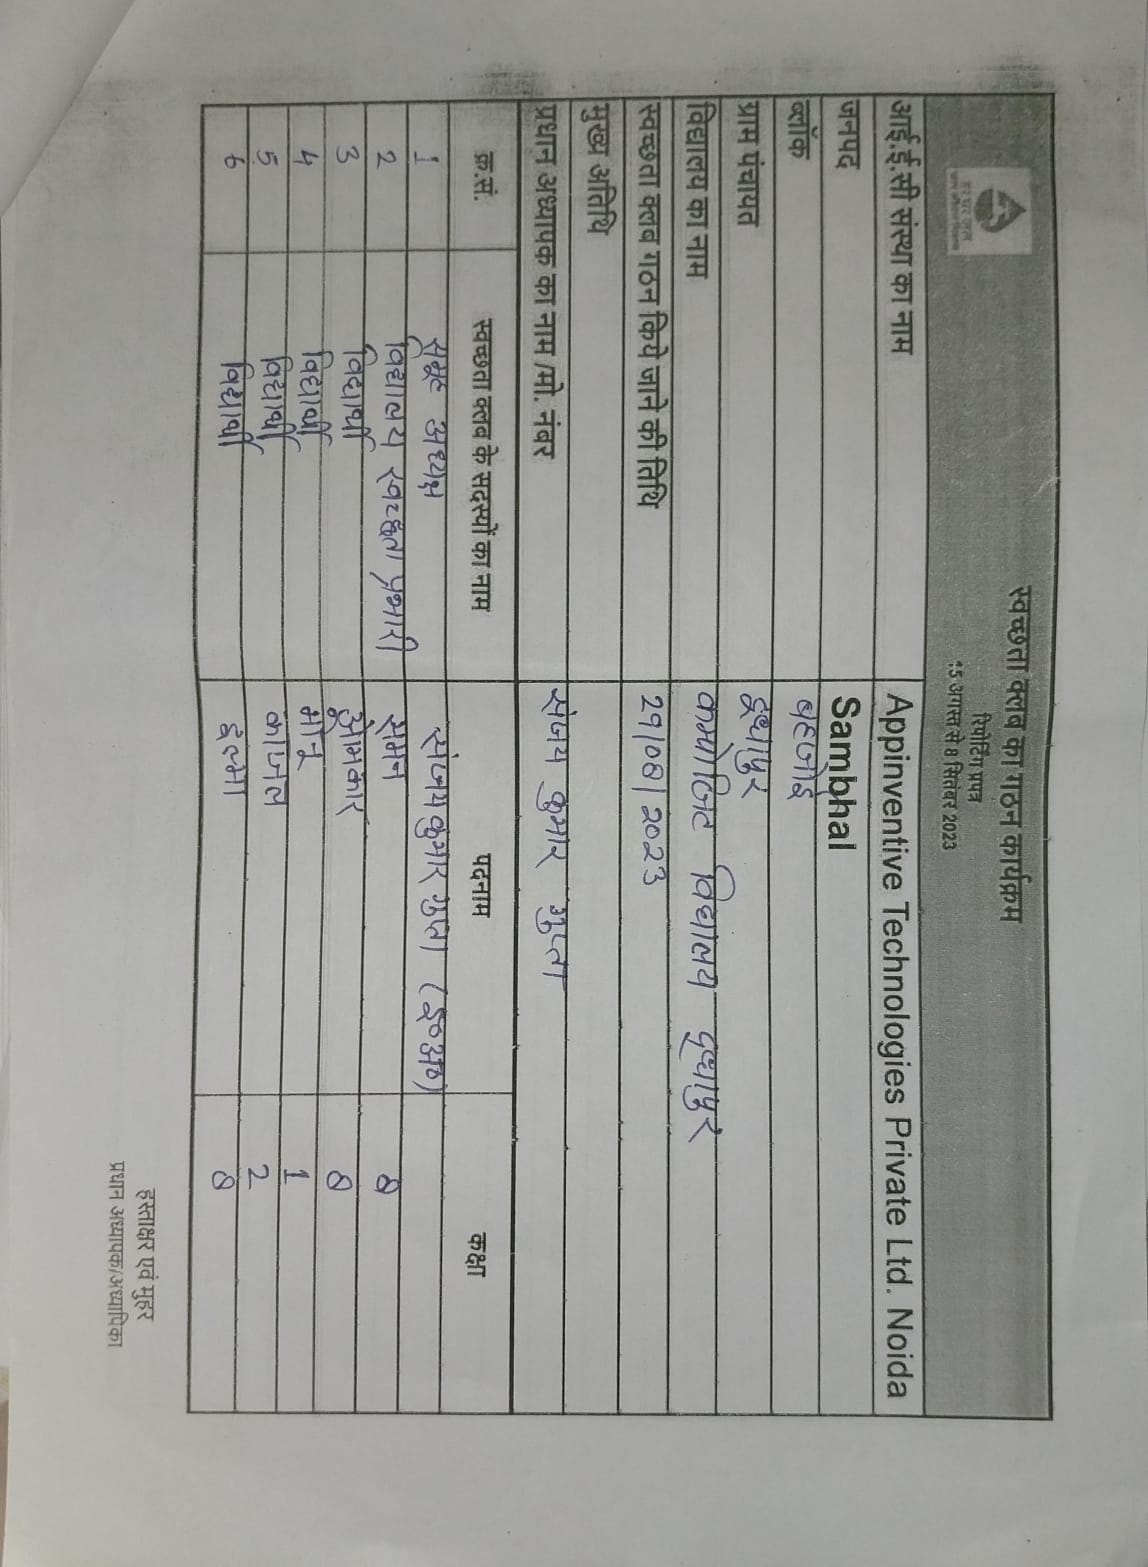 स्वच्छता क्लब का गठन कार्यक्रम
रिपोर्टिंग प्रपत्र
15 अगस्त से 8 सितंबर 2023
आई.ई.सी संस्था का नाम Appinventive Technologies Private Ltd. Noida
जनपद Sambhal
ब्लॉक बहजोई
ग्राम पंचायत
विद्यालय का नाम कम्पोजिट विद्यालय
स्वच्छता क्लब गठन किये जाने की तिथि 29/08/2023
मुख्य अतिथि
प्रधान अध्यापक का नाम /मो. नंबर संजय कुमार गुप्ता
क्र.सं. स्वच्छता क्लब के सदस्यों का नाम पदनाम कक्षा
1 अध्यक्ष संजय कुमार गुप्ता (इ०अ०)
2 विद्यालय स्वच्छता प्रभारी सुमन 8
3 विद्यार्थी ओमकार 8
4 विद्यार्थी 1
5 विद्यार्थी काजल 2
6 विद्यार्थी 8
हस्ताक्षर एवं मुहर
प्रधान अध्यापक/अध्यापिका